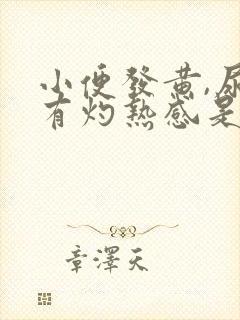 小便發黃,尿
有灼熱感是
章澤天